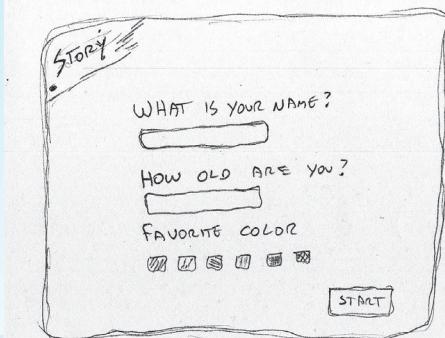 STORY
WHAT IS YOUR NAME?
HOW OLD ARE YOU?
FAVORITE COLOR
START